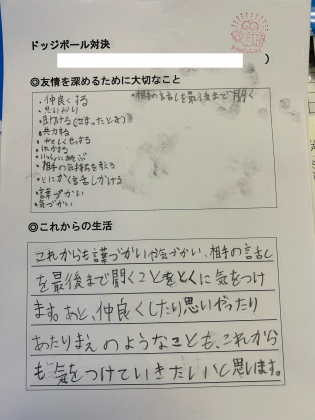 ドッジボール対決
)
◎友情を深めるために大切なこと
・仲良くする
・思いやり
・助ける(せまったとき)
・共力する
・やさしくせっする
・協力する
・いっしょに遊ぶ
・相手の気持ちを考える
・とにかく話しかける
・言葉づかい
・気づかい
・相手の話しを最後まで聞く
◎これからの生活
これからも言葉づかいや気づかい、相手の話し
を最後まで聞くことをとくに気をつけ
ます。あと、仲良くしたり思いやったり
あたりまえのようなことも、これから
も気をつけていきたいと思います。